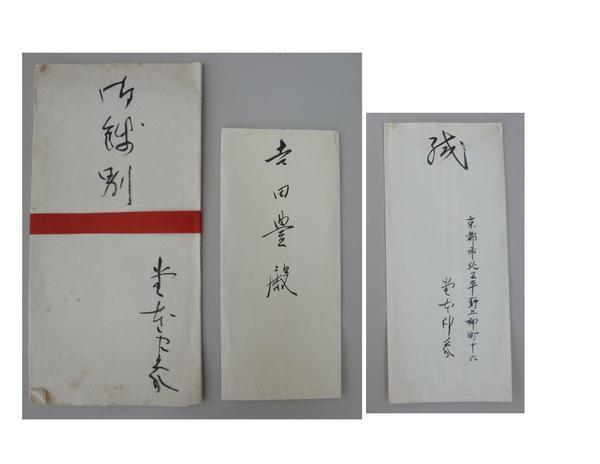 御餞別
堂本印象
吉田豊殿
緘
京都市北区平野上柳町十六
堂本印象